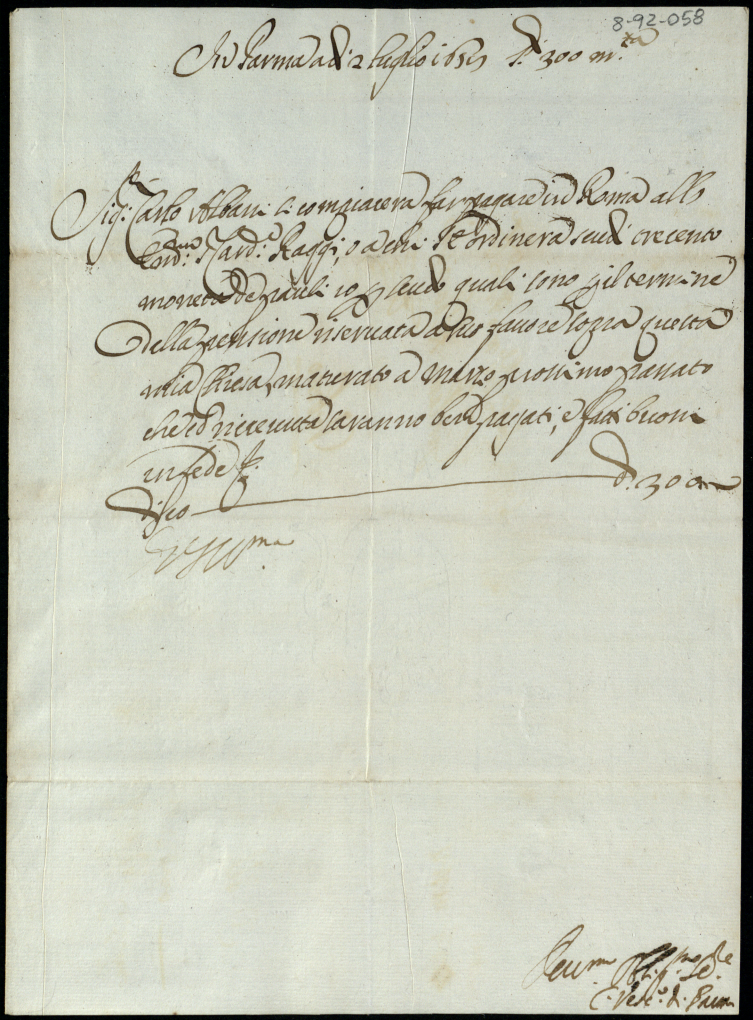 8-92-058
In Parma adi 2 luglio 1659 ∇di 300 m.ta
Sig.r Carlo Albani si compiacerà far pagare in Roma allo
Em.mo S.r Card.l Raggi, o a chi S.E. ordinerà scudi trecento
moneta de pauli 10 p scudo quali sono p il termine
della pensione riservata a suo favore sopra questa
mia Chiesa, maturato a Marzo prossimo passato
che con ricevuta saranno ben pagati, e fatti buoni
in fede &.
dico di 300
di Parma